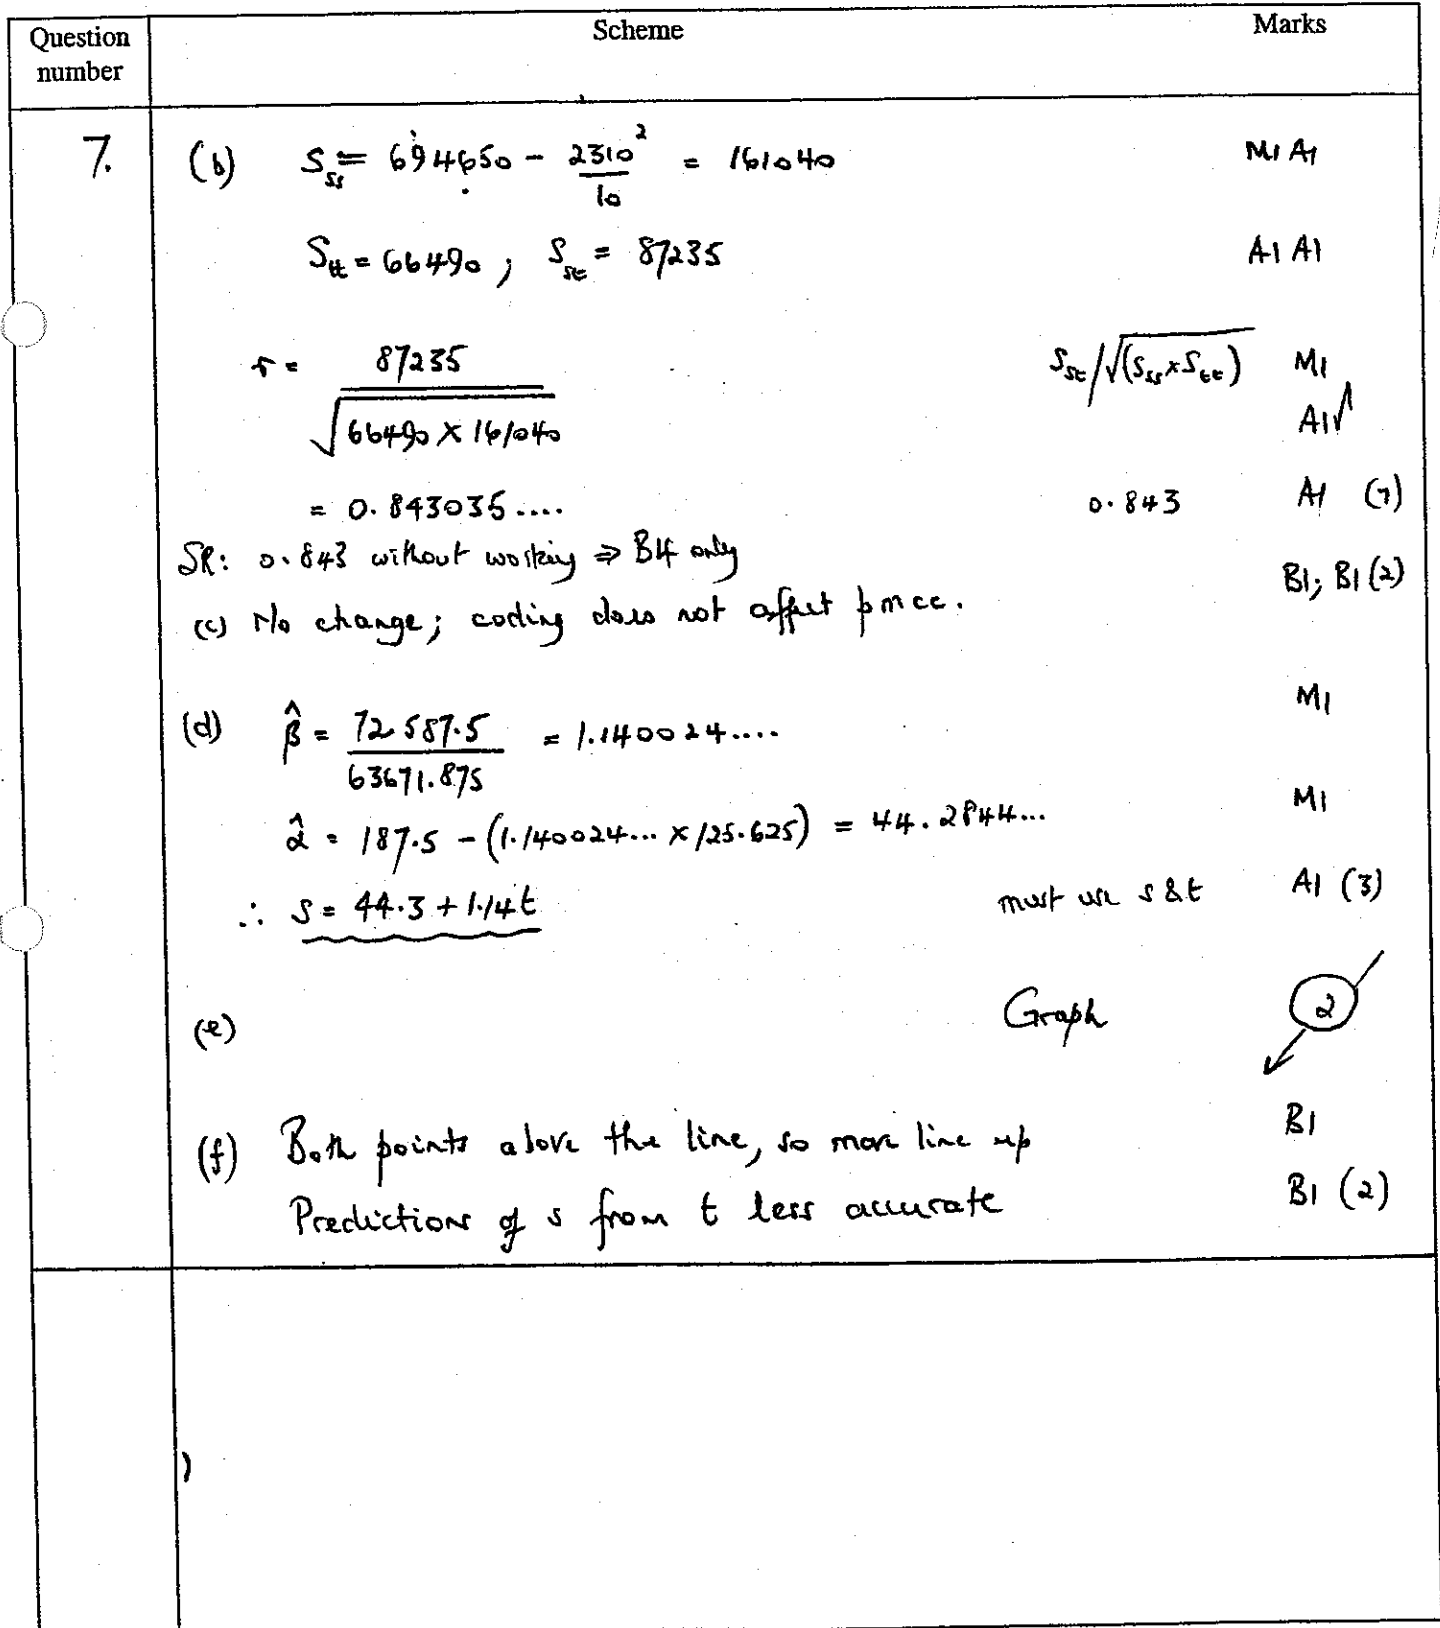 Question number Scheme Marks
7. (b) S_ss = 694650 - 2310²/10 = 161040 M1 A1
S_tt = 66490 ; S_st = 87235 A1 A1
r = 87235/√(66490 × 161040) S_st/√(S_ss × S_tt) M1
A1√
= 0.843035.... 0.843 A1 (7)
SR: 0.843 without working ⇒ B4 only
(c) No change; coding does not affect pmcc. B1; B1 (2)
(d) β̂ = 72587.5/63671.875 = 1.140024.... M1
α̂ = 187.5 - (1.140024... × 125.625) = 44.2844... M1
∴ s = 44.3 + 1.14t must use s & t A1 (3)
(e) Graph 2
(f) Both points above the line, so move line up B1
Predictions of s from t less accurate B1 (2)